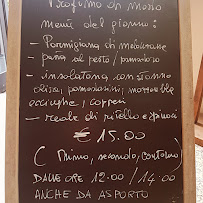 Profumo di mosto
menù del giorno:
- Parmigiana di melanzane
- pasta al pesto / pomodoro
- insalatona con tonno
olive, pomodorini, mozzarella
acciughe, capperi
- reale di vitello e spinaci
€ 15.00
( Primo, secondo, contorno)
DALLE ORE 12:00 / 14:00
ANCHE DA ASPORTO